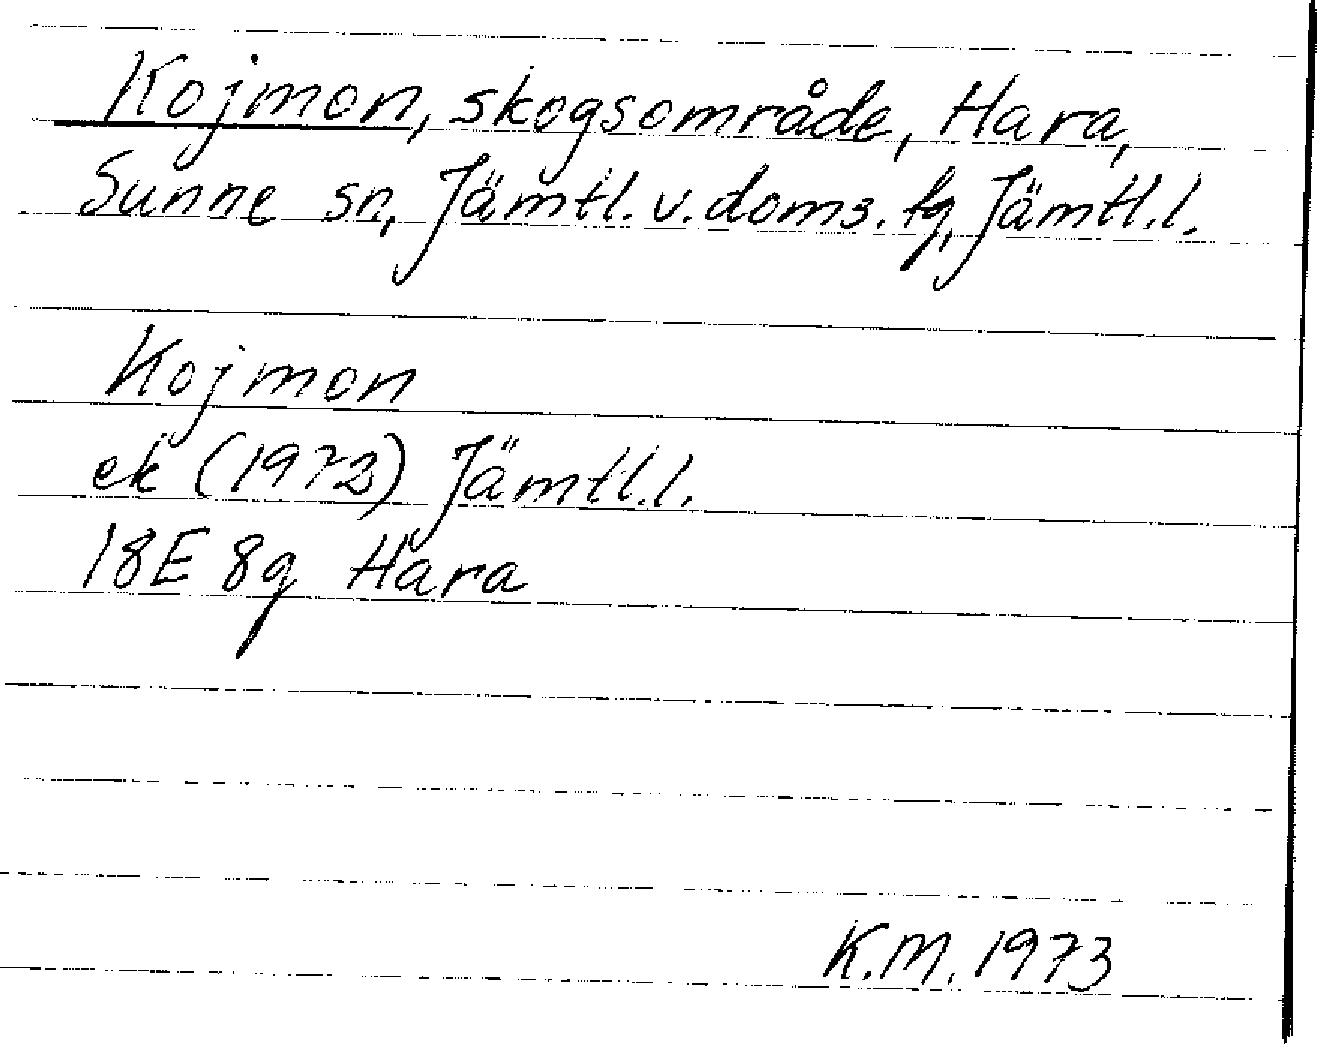 Kojmon, skogsområde, Hara,
Sunne sn, Jämtl. v. doms. tg, Jämtl. l.
Kojmon
ek (1972) Jämtl. l.
18E 8g Hara
K.M. 1973